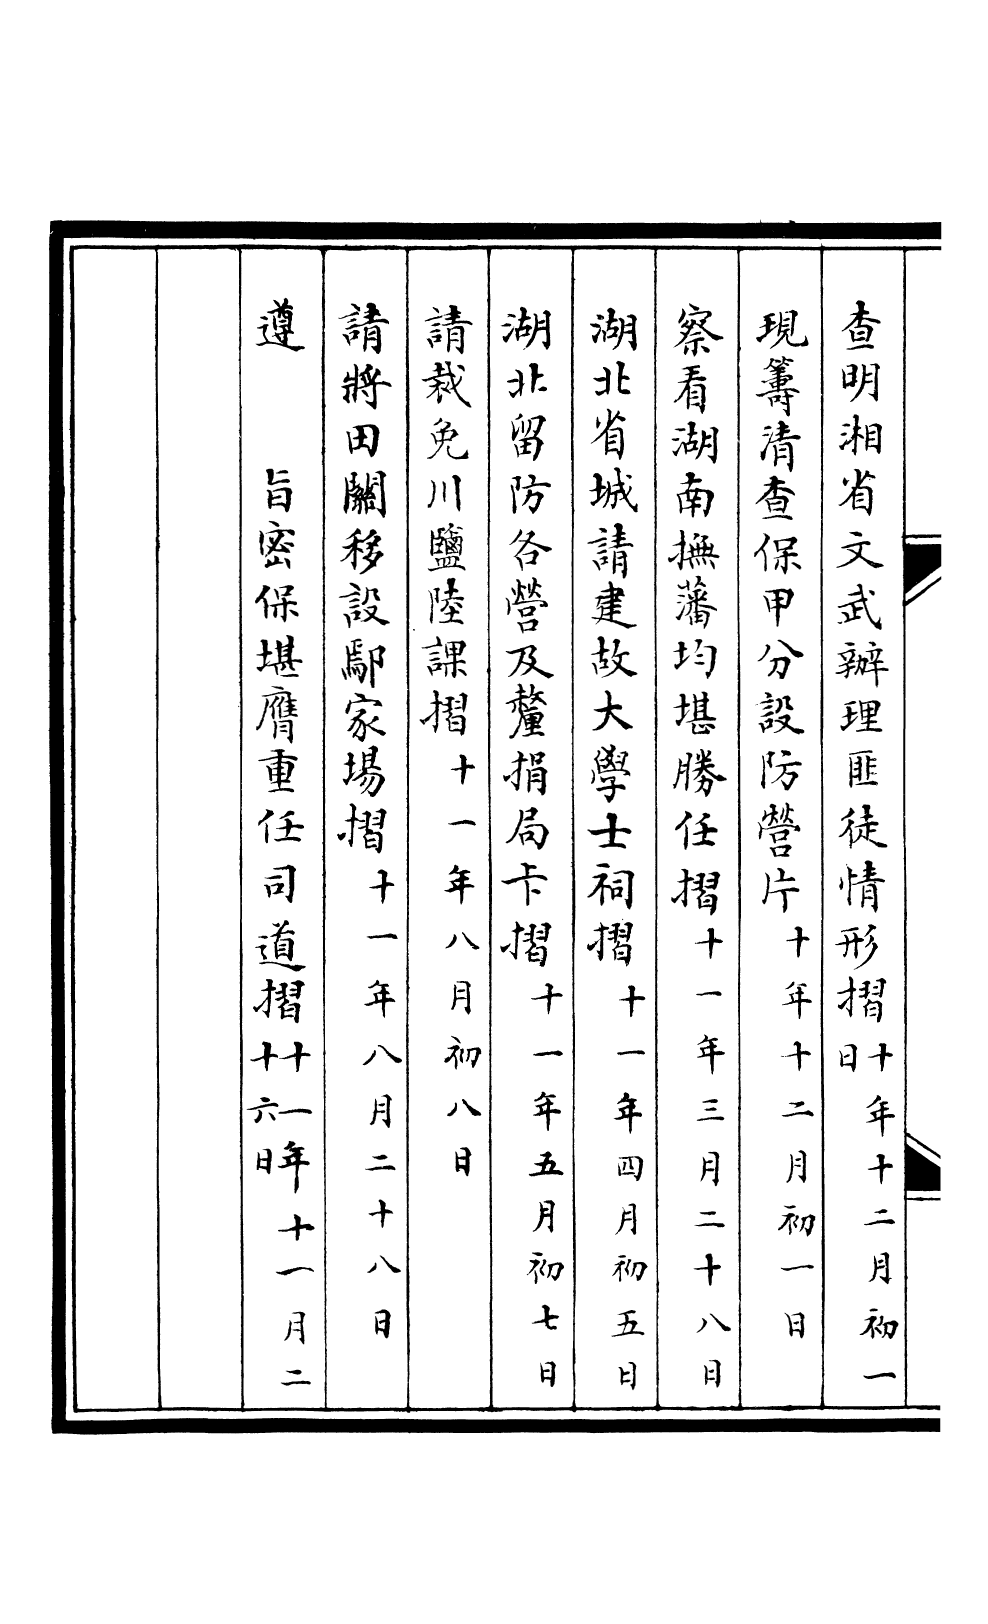 查明湘省文武辦理匪徒情形摺十年十二月初一日
現籌清查保甲分設防營片十年十二月初一日
察看湖南撫藩均堪勝任摺十一年三月二十八日
湖北省城請建故大學士祠摺十一年四月初五日
湖北留防各營及釐捐局卡摺十一年五月初七日
請裁免川鹽陸課摺十一年八月初八日
請將田關移設鄢家場摺十一年八月二十八日
遵　旨密保堪膺重任司道摺十一年十一月二十六日